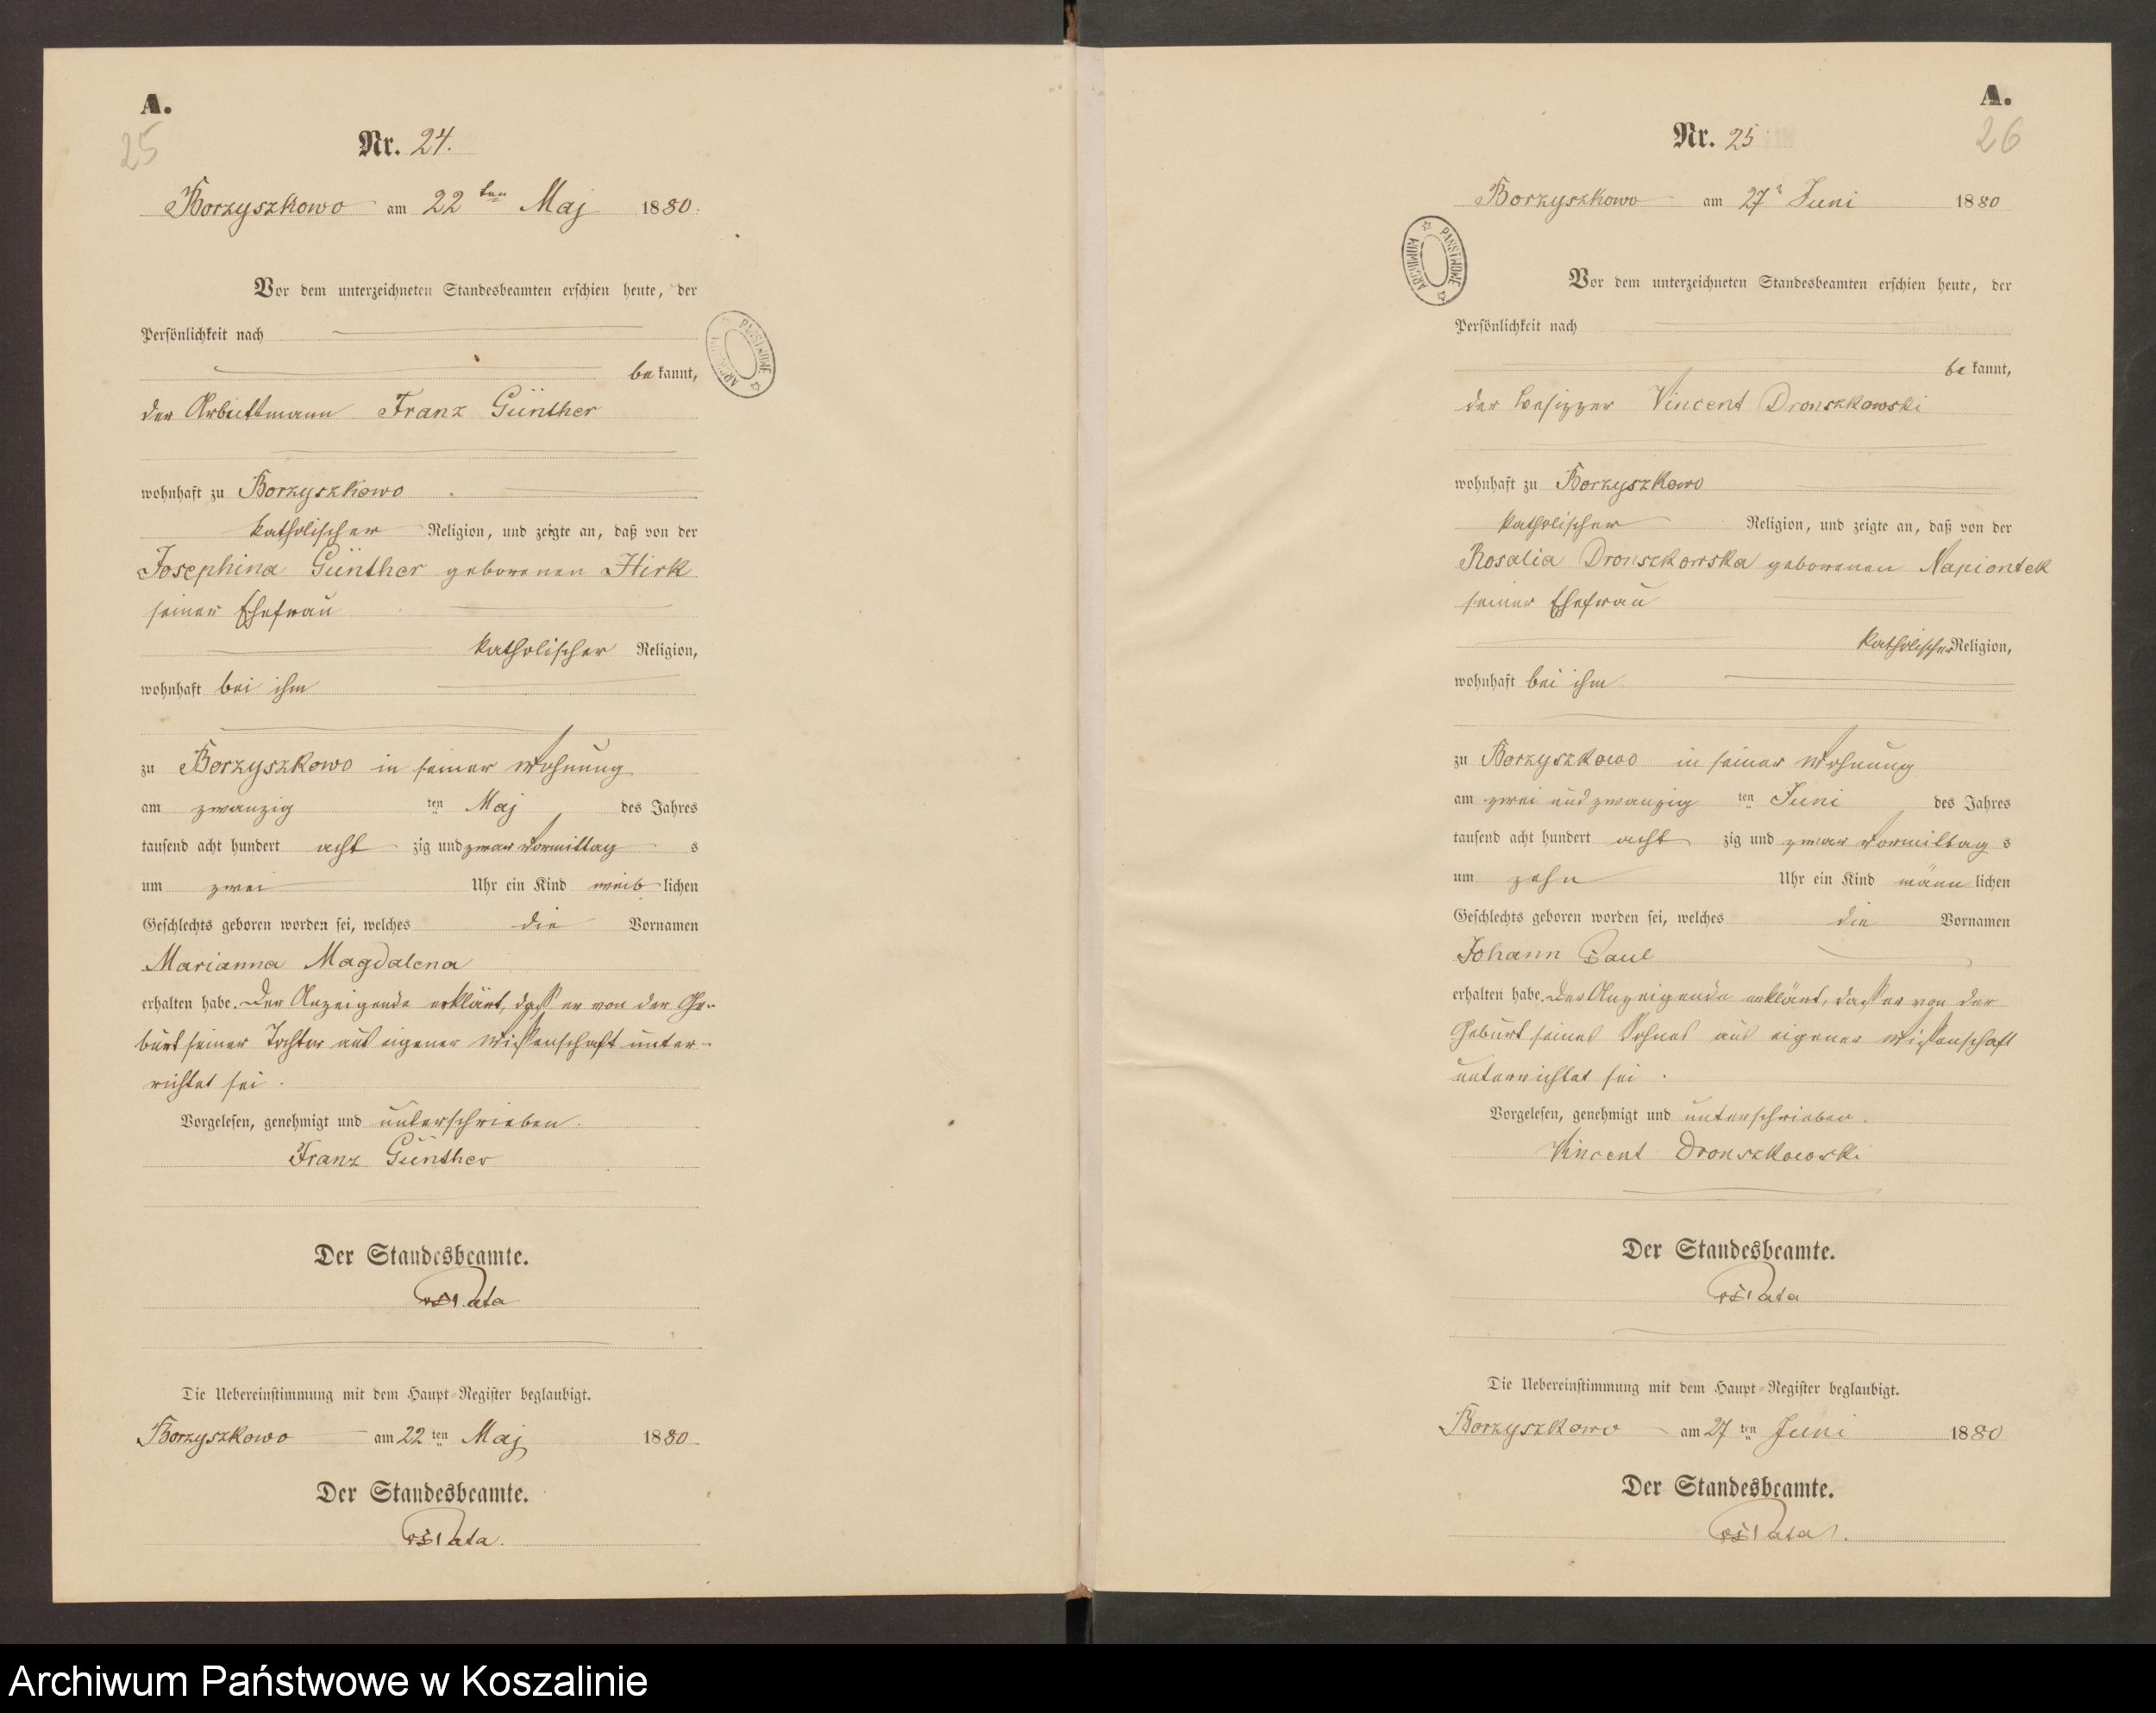 A.
25
Nr. 24.
Borzyszkowo am 22 ten Maj 1880.
Vor dem unterzeichneten Standesbeamten erschien heute, der
Persönlichkeit nach
be kannt,
der Arbeittmann Franz Günther
wohnhaft zu Borzyszkowo
katholischer Religion, und zeigte an, daß von der
Josephina Günther geborenen Hirk
seiner Ehefrau
katholischer Religion,
wohnhaft bei ihm
zu Borzyszkowo in seiner Wohnung
am zwanzig ten Maj des Jahres
tausend acht hundert acht zig und zwar Vormittag s
um zwei Uhr ein Kind weib lichen
Geschlechts geboren worden sei, welches die Vornamen
Marianna Magdalena
erhalten habe. Der Anzeigende erklärt, daß er von der Ge-
burt seiner Tochter aus eigener Wissenschaft unter-
richtet sei.
Vorgelesen, genehmigt und unterschrieben.
Franz Günther
Der Standesbeamte.
Pata
Die Uebereinstimmung mit dem Haupt-Register beglaubigt.
Borzyszkowo am 22 ten Maj 1880
Der Standesbeamte.
Pata.
A.
26
Nr. 25
Borzyszkowo am 27 Juni 1880
ARCHIWUM PAŃSTWOWE
Vor dem unterzeichneten Standesbeamten erschien heute, der
Persönlichkeit nach
be kannt,
der Besizzer Vincent Dronszkowski
wohnhaft zu Borzyszkowo
katholischer Religion, und zeigte an, daß von der
Rosalia Dronszkowska geborenen Napiontek
seiner Ehefrau
katholischer Religion,
wohnhaft bei ihm
zu Borzyszkowo in seiner Wohnung
am zwei und zwanzig ten Juni des Jahres
tausend acht hundert acht zig und zwar Vormittag s
um zehn Uhr ein Kind männ lichen
Geschlechts geboren worden sei, welches die Vornamen
Johann Paul
erhalten habe. Der Anzeigende erklärt, daß er von der
Geburt seines Sohnes aus eigener Wissenschaft
unterrichtet sei.
Vorgelesen, genehmigt und unterschrieben.
Vincent Dronszkowski
Der Standesbeamte.
Pata
Die Uebereinstimmung mit dem Haupt-Register beglaubigt.
Borzyszkowo am 27 ten Juni 1880
Der Standesbeamte.
Pata.
Archiwum Państwowe w Koszalinie